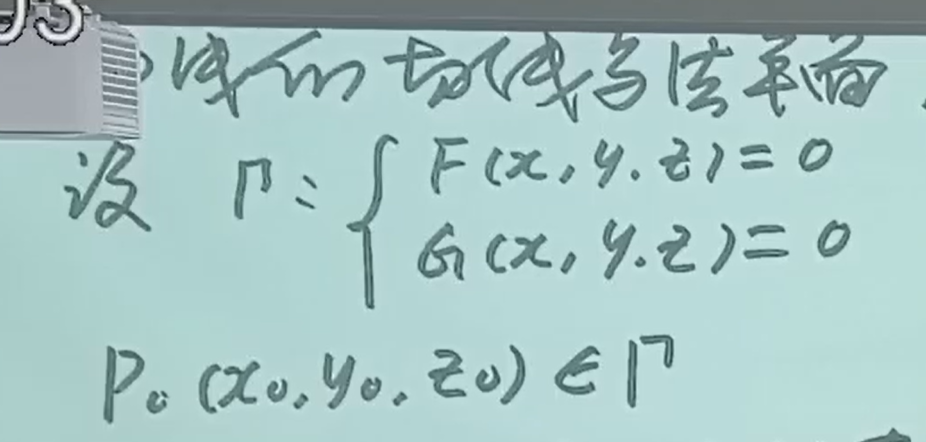 线的切线与法平面
设 Γ: { F(x, y, z) = 0
G(x, y, z) = 0
P₀(x₀, y₀, z₀) ∈ Γ